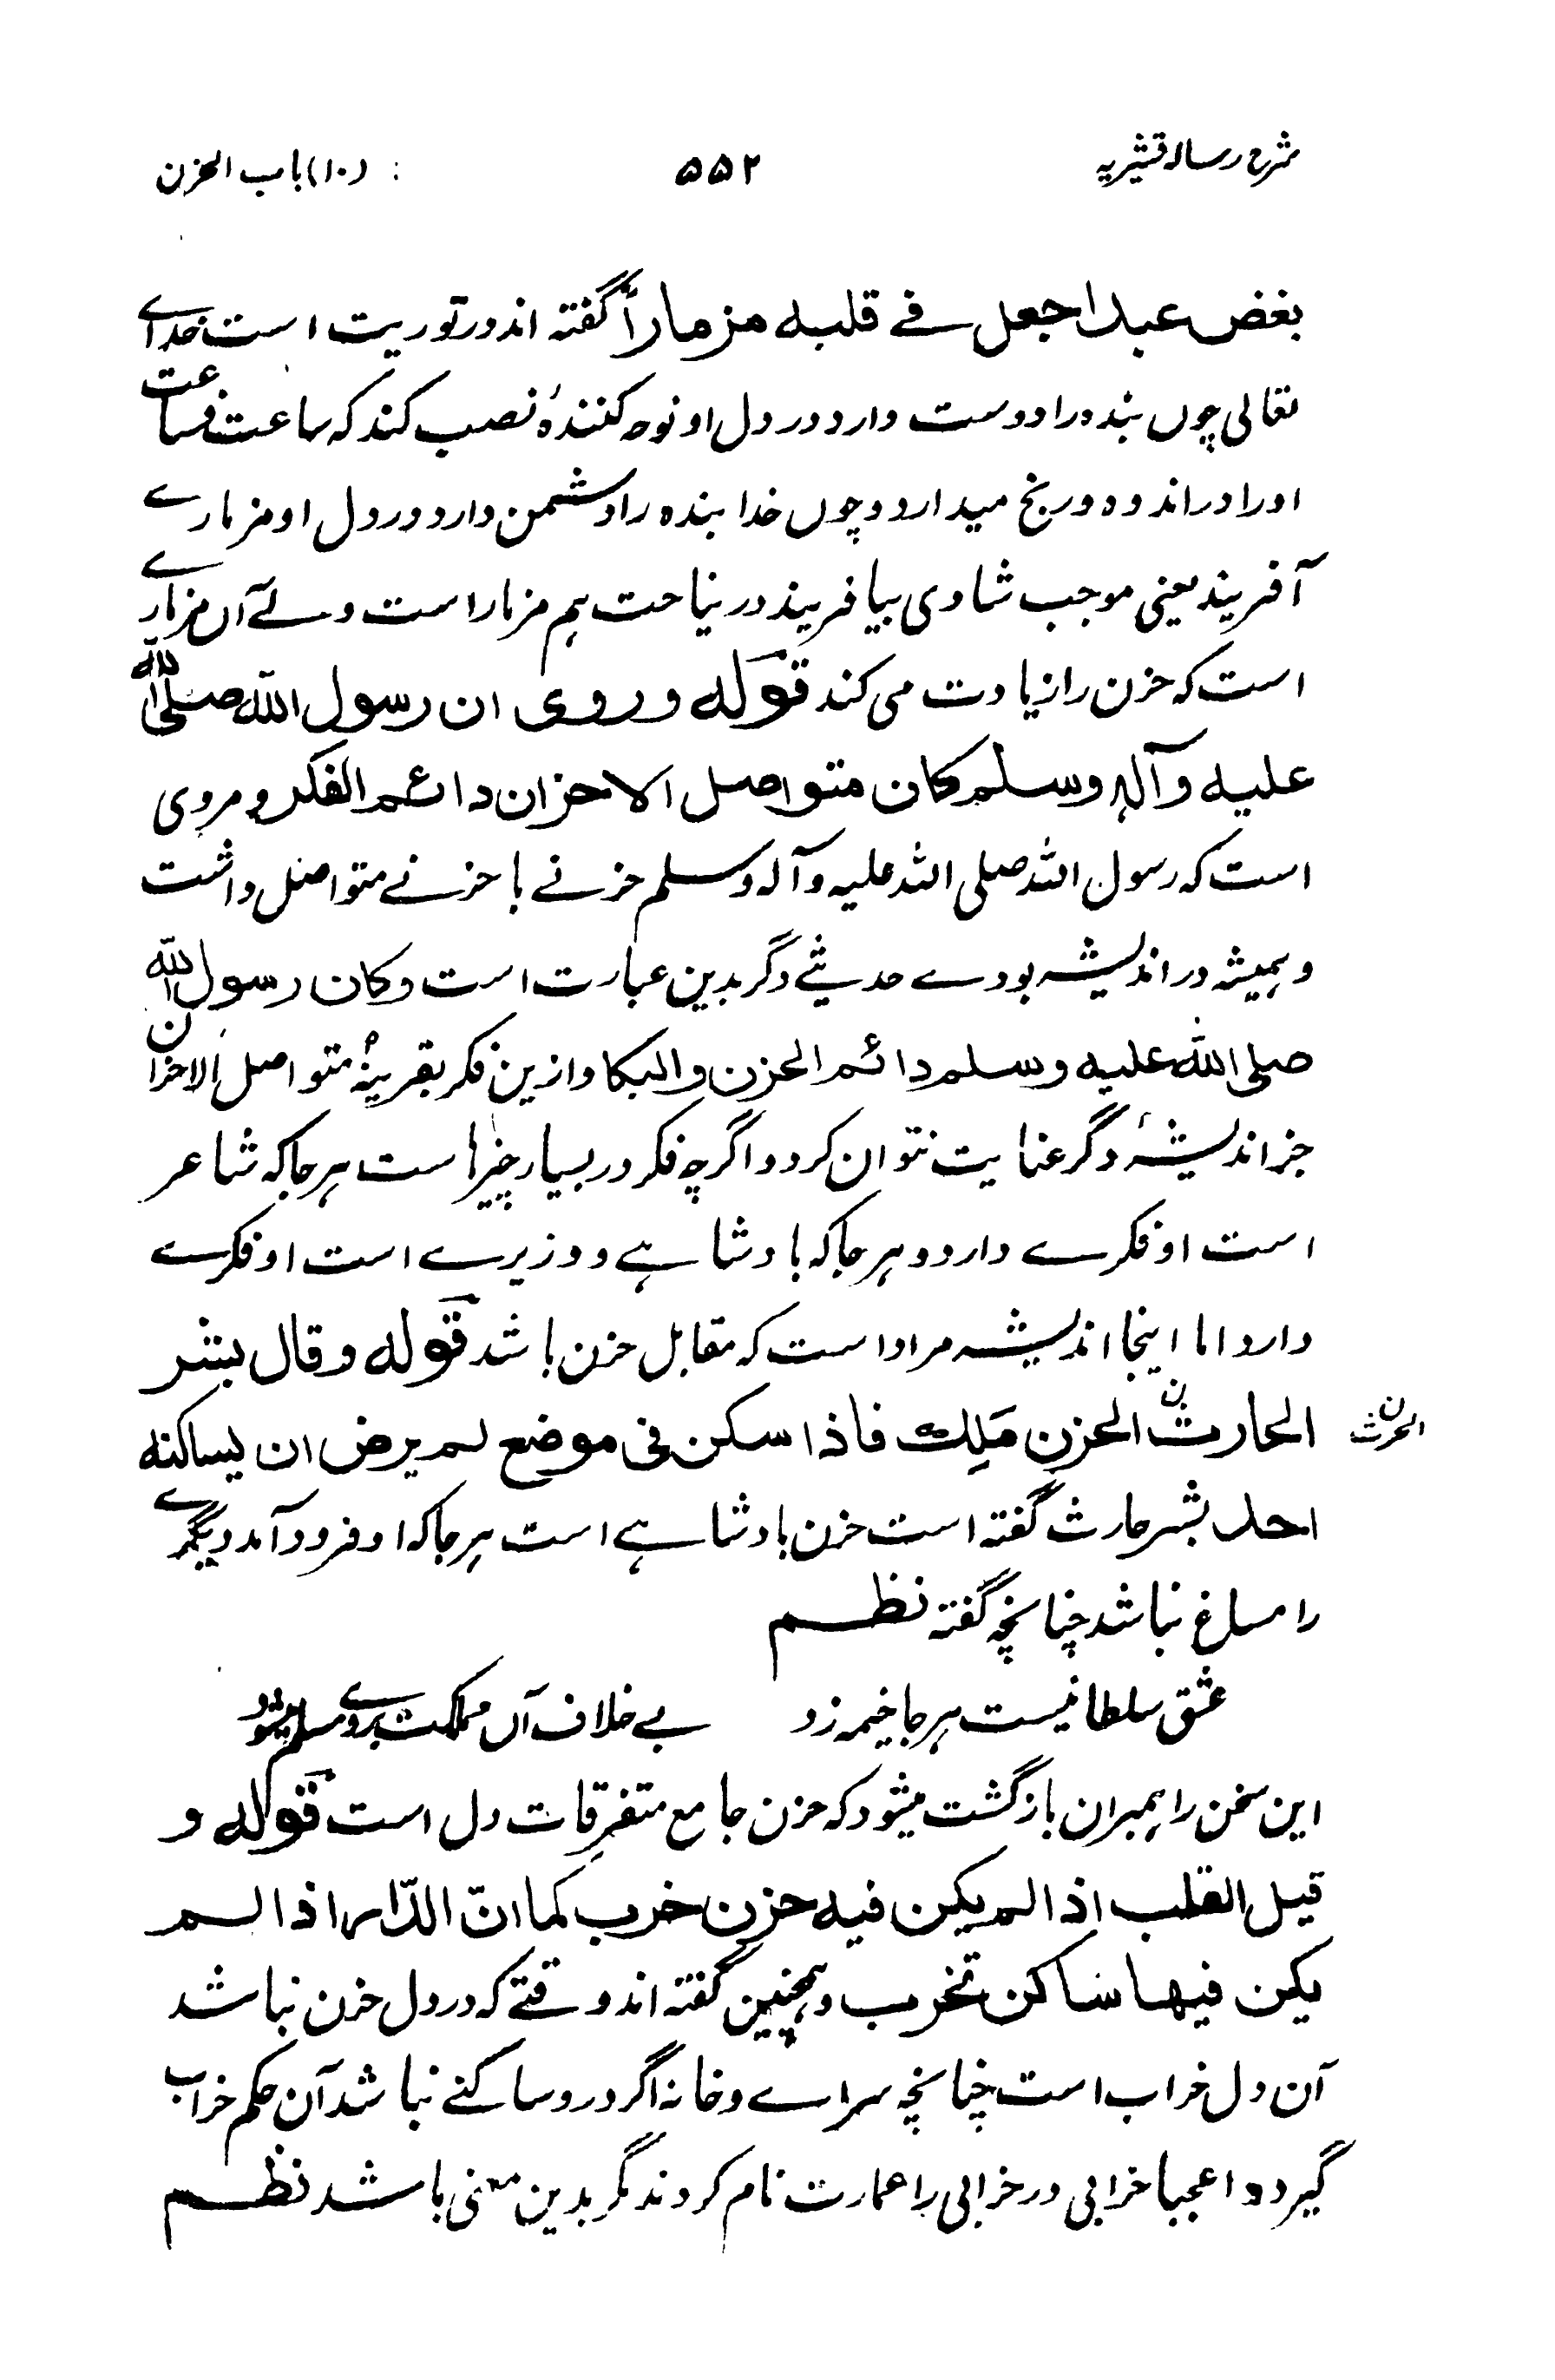 شرح رسالہ قشیریہ ۵۵۲ (۱۰) باب الحزن
بغض عبدا جعل فے قلبه مزماراً گفتہ اند در توریت است خداے
تعالی چوں بندہ را دوست دارد در دل او نوحہ کنندۂ نصب کند کہ ساعت فساعت
او را در اندوہ و رنج میدارد و چوں خدا بندہ را دشمن دارد در دل او مزمارے
آفریند یعنی موجب شادی بیافریند در نیاحت ہم مزمار است ولے آں مزمارے
است کہ حزن را زیادت می کند قوله وروی ان رسول الله صلی الله
علیه وآلہ وسلم کان متواصل الاحزان دائم الفکر و مروی
است کہ رسول اللہ صلی اللہ علیہ وآلہ وسلم حزنے با حزنے متواصل داشت
و ہمیشہ در اندیشہ بودے حدیثے دگر بدین عبارت است وکان رسول الله
صلی الله علیه وسلم دائم الحزن والبکا و ازین فکر بقرینۂ متواصل الاحزان
جز اندیشۂ دگر عنایت نتوان کرد و اگرچہ فکر در بسیار چیزہا ست ہر جا کہ شاعر
است او فکرے دارد و ہر جا کہ بادشاہے و وزیرے است او فکرے
دارد اما اینجا اندیشہ مراد است کہ مقابل حزن باشد قوله وقال بشر
الحارث ن الحزن مَلِك فاذا سکن فی موضع لم یرض ان یساکنه
الحرث ن
احد بشر حارث گفتہ است حزن بادشاہے است ہر جا کہ او فرود آمد دیگرے
را مساغ نباشد چنانچہ گفتہ نظم
عشق سلطانیست ہر جا خیمہ زد بے خلاف آں مملکت بروے مسلم میشود
این سخن را ہمبران بازگشت میشود کہ حزن جامع متفرقات دل است قوله و
قیل القلب اذا لم یکن فیه حزن خرب کما انّ الدّار اذا لم
یکن فیها ساکن تخرب و ہمچنین گفتہ اند وقتے کہ در دل حزن نباشد
آن دل خراب است چنانچہ سراے و خانہ اگر درو ساکنے نباشد آن حکم خراب
گیرد وا عجبا خرابی در خرابی را عمارت نام کردند مگر بدین معنی باشد نظم